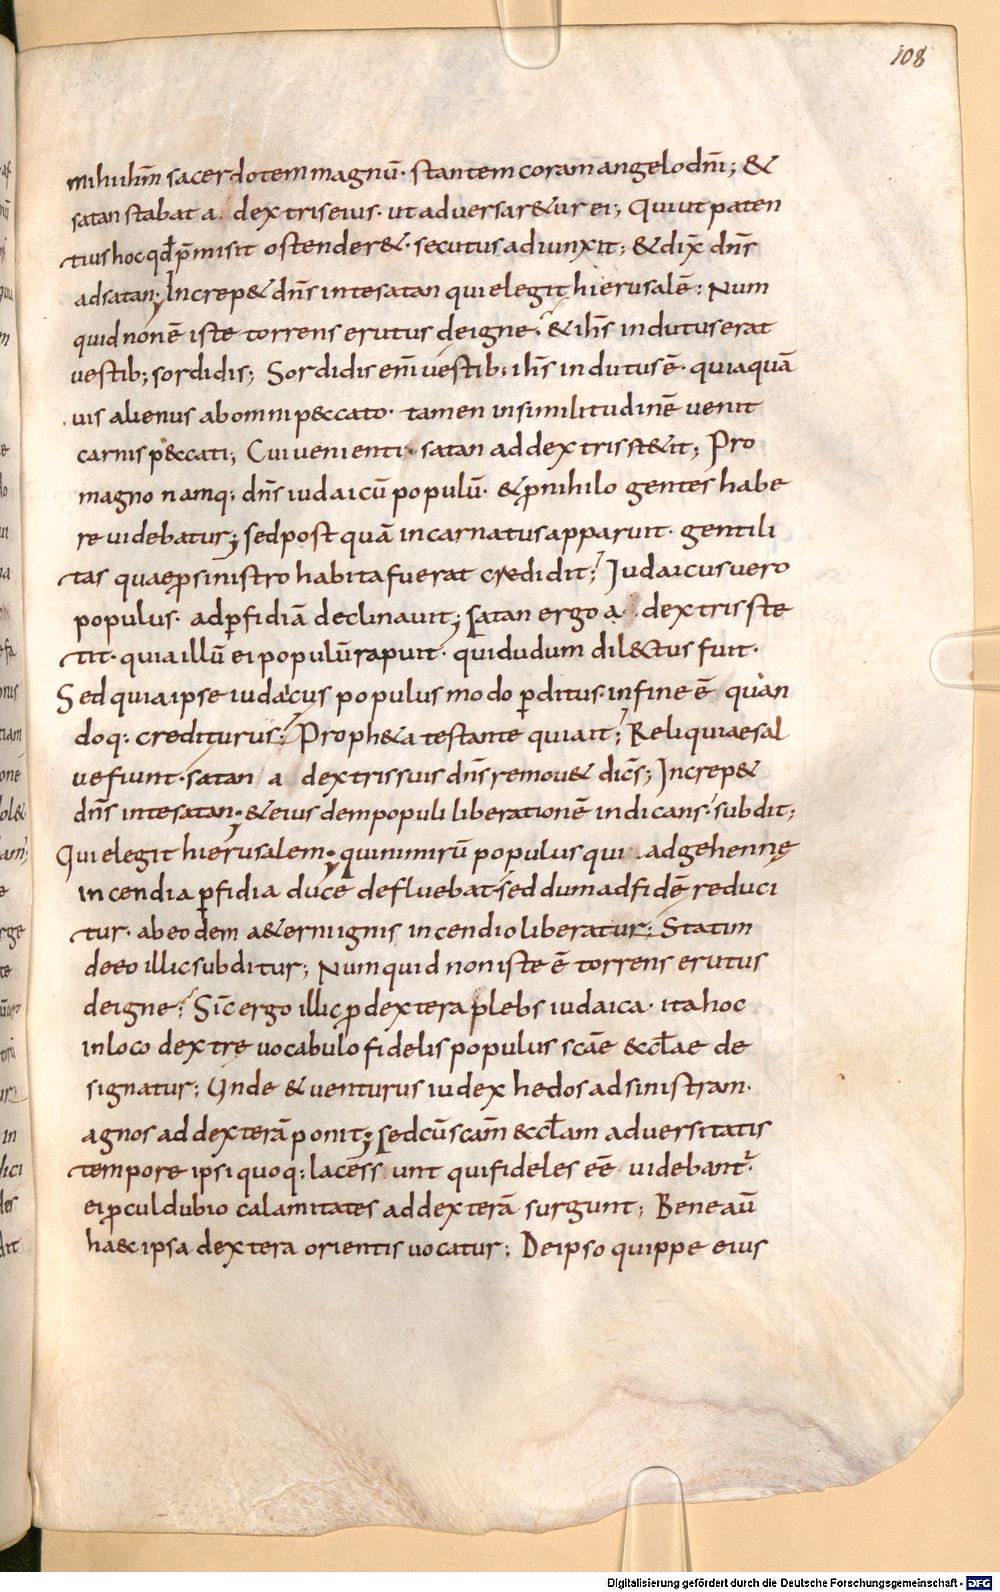 108
mihi ih̅m sacerdotem magnu̅· stantem coram angelo dn̅i; &
satan stabat a dextris eius· ut aduersar&ur ei; Qui ut paten
tius hoc qd̅ p̅misit ostender&· secutus adiunxit; & dix̅ dn̅s
ad satan; Increp& dn̅s in te satan qui elegit hierusale̅: Num
quid non e̅ iste torrens erutus de igne? & ih̅s indutus erat
uestib; sordidis; Sordidis eni̅ uestib; ih̅s indutus e̅· quia qua̅
uis alienus ab omni p&ccato· tamen in similitudine̅ uenit
carnis p&ccati; Cui uenienti· satan ad dextris st&it; Pro
magno namq; dn̅s iudaicu̅ populu̅· & ꝓ nihilo gentes habe
re uidebatur; sed post qua̅ incarnatus apparuit· gentili
tas quae ꝓ sinistro habita fuerat credidit; Iudaicus uero
populus· ad ꝑfidia̅ declinauit; Satan ergo a dextris ste
tit· quia illu̅ ei populu̅ rapuit· qui dudum dil&ctus fuit·
Sed quia ipse iudaicus populus modo ꝑditus· in fine e̅ quan
doq: crediturus; Proph&a testante qui ait; Reliquiae sal
ue fiunt· satan a dextris suis dn̅s remou& dice̅s; Increp&
dn̅s in te satan; & eius dem populi liberatione̅ indicans· subdit;
Qui elegit hierusalem; qui nimiru̅ populus qui ad gehennę
incendia ꝑfidia duce̅ defluebat· sed dum ad fide̅ reduci
tur· ab eodem a&erni ignis incendio liberatur; Statim
de eo illic subditur; Numquid non iste e̅ torrens erutus
de igne? Sic̅ ergo illic ꝓ dextera plebs iudaica· ita hoc
in loco dextrę uocabulo fidelis populus sc̅ae &ccl̅ae de
signatur; Unde & uenturus iudex hedos ad sinistram·
agnos ad dextera̅ ponit; sed cu̅ sc̅am &ccl̅am aduersitatis
tempore ipsi quoq: lacess unt qui fideles ee̅ uidebant̅
ei ꝓcul dubio calamitates ad dextera̅ surgunt; Bene au̅
ha&c ipsa dextera orientis uocatur; De ipso quippe eius
Digitalisierung gefördert durch die Deutsche Forschungsgemeinschaft - DFG